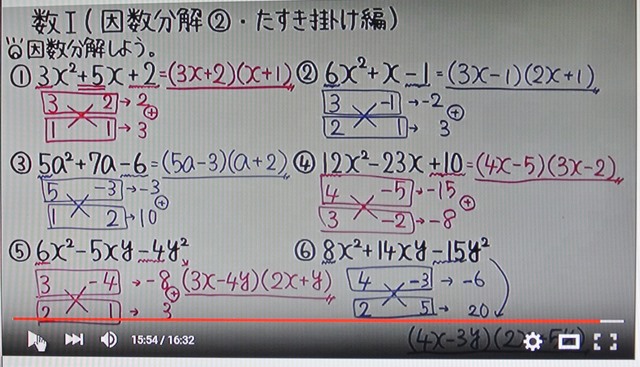 数Ⅰ(因数分解②・たすき掛け編)
因数分解しよう。
① 3x²+5x+2=(3x+2)(x+1)
3 2 → 2
1 1 → 3
+
② 6x²+x-1=(3x-1)(2x+1)
3 -1 → -2
2 1 3
+
③ 5a²+7a-6=(5a-3)(a+2)
5 -3 → -3
1 2 → 10
+
④ 12x²-23x+10=(4x-5)(3x-2)
4 -5 → -15
3 -2 → -8
+
⑤ 6x²-5xy-4y²
3 -4 → -8 (3x-4y)(2x+y)
2 1 → 3
+
⑥ 8x²+14xy-15y²
4 -3 → -6
2 5 → 20
(4x-3y)(2x+5y)
15:54 / 16:32